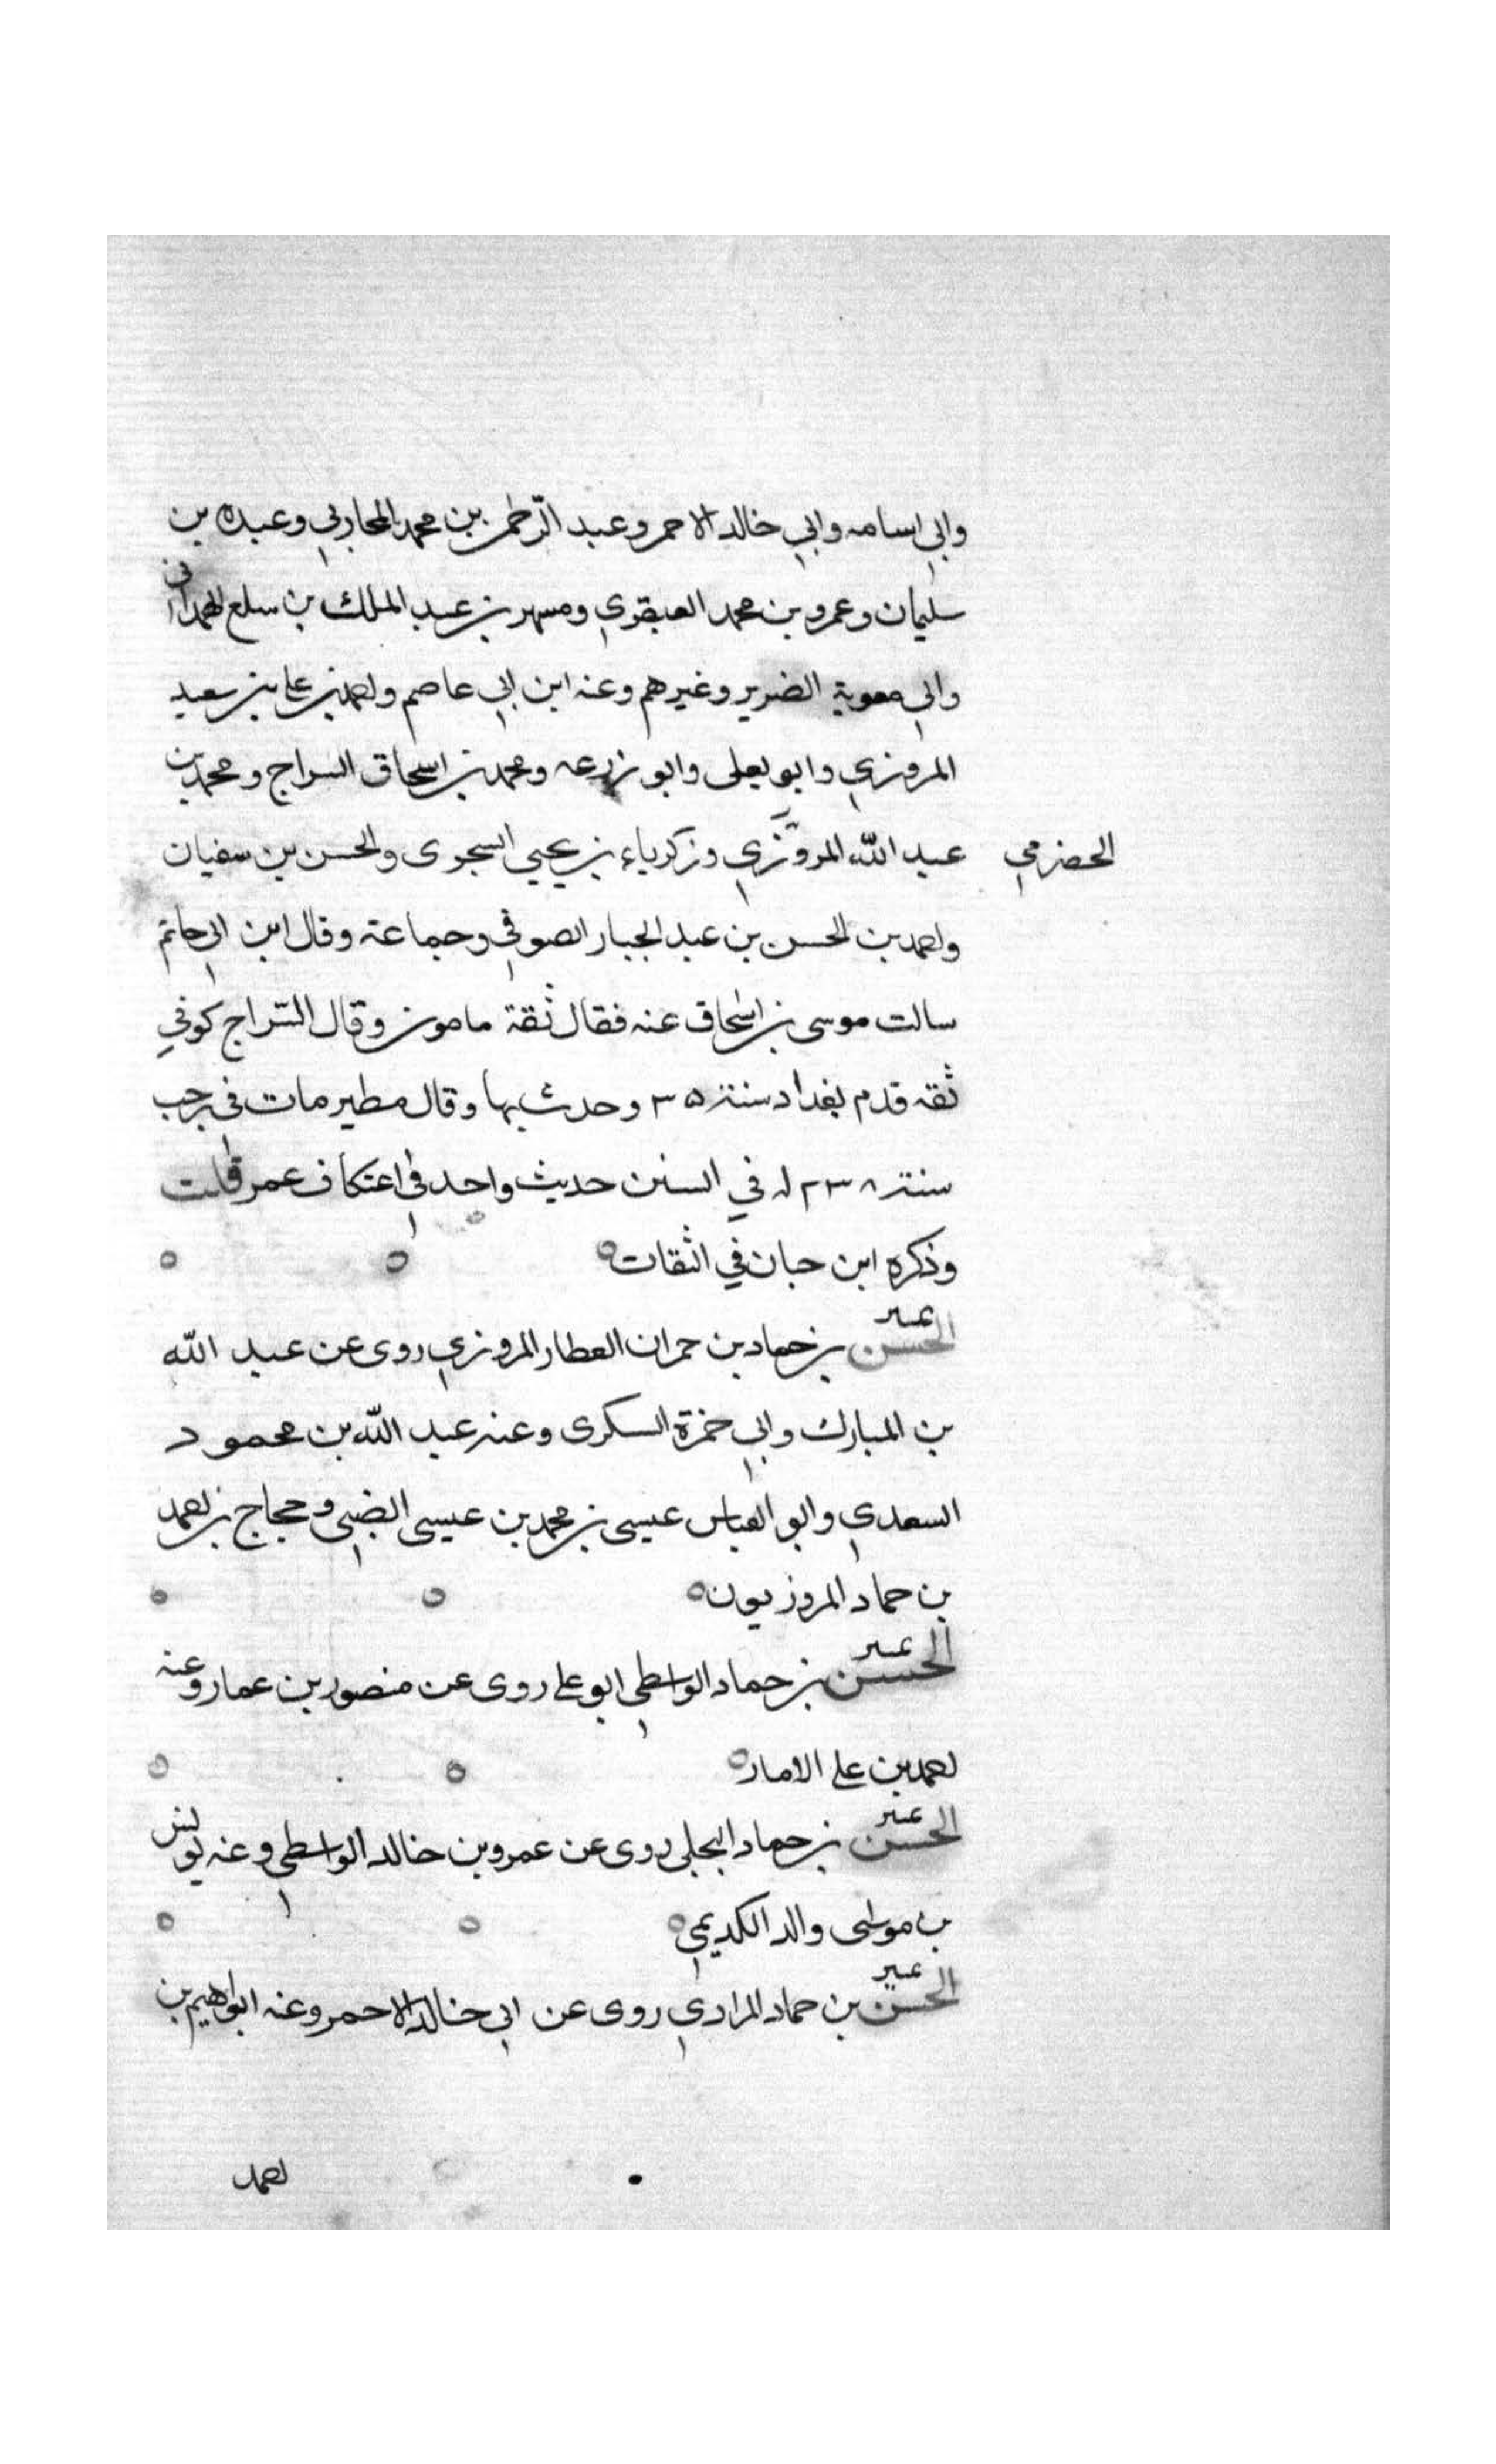 وابي اسامه وابي خالد الاحمر وعبد الرّحمن بن محمد المحاربي وعبده بن
سليمان وعمرو بن محمد العبقري ومسهر بن عبد الملك بن سلع الهمداني
وابي معوية الضرير وغيرهم وعنه ابن ابي عاصم واحمد بن علي بن سعيد
المروزي وابو يعلى وابو زرعه ومحمد بن اسحاق السراج ومحمد بن
عبد الله المروزي وزكرياء بن يحيي السجزى والحسن بن سفيان
الحضرمي
واحمد بن الحسن بن عبد الجبار الصوفي وجماعة وقال ابن ابي حاتم
سالت موسى بن اسحاق عنه فقال ثقة مامون وقال السّراج كوفي
ثقه قدم بغداد سنة ٣٥ وحدث بها وقال مطير مات في رجب
سنة ٢٣٨ له في السنن حديث واحد في اعتكاف عمر قلت
وذكره ابن حبان في الثقات
الحسن بن حماد بن حمران العطار المروزي روى عن عبد الله
بن المبارك وابي حمزة السكرى وعنه عبد الله بن محمود
السعدي وابو العباس عيسى بن محمد بن عيسى الضبي وحجاج بن احمد
بن حماد المروزيون
الحسن بن حماد الواسطي ابو علي روى عن منصور بن عمار وعنه
احمد بن علي الابار
الحسن بن حماد البجلي روى عن عمرو بن خالد الواسطي وعنه يونس
بن موسى والد الكديمي
الحسن بن حماد المرادي روى عن ابي خالد الاحمر وعنه ابراهيم بن
احمد